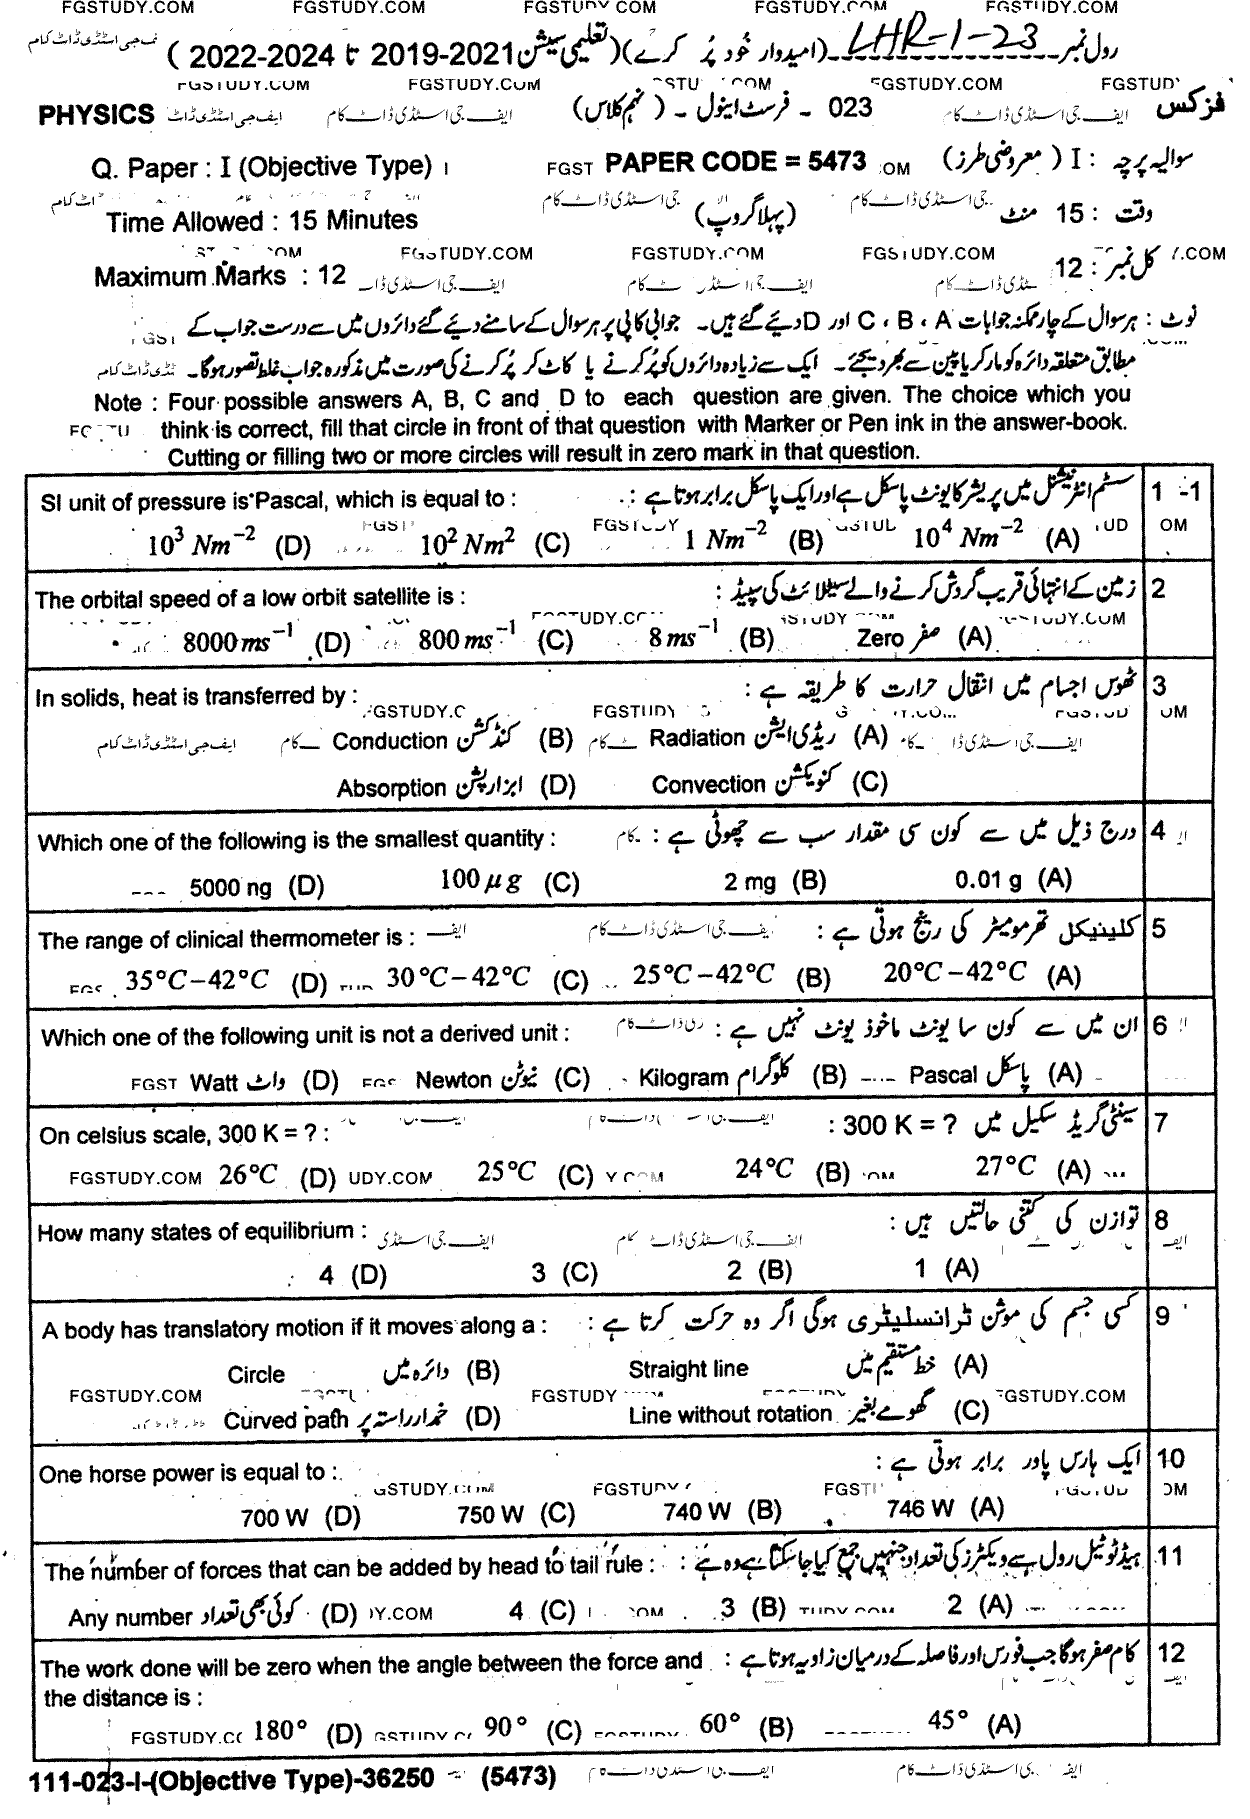 FGSTUDY.COM FGSTUDY.COM FGSTUDY.COM FGSTUDY.COM FGSTUDY.COM
رول نمبر LHR-1-23 (امیدوار خود پُر کرے) (تعلیمی سیشن 2021-2019 تا 2024-2022)
FGSTUDY.COM FGSTUDY.COM FGSTUDY.COM
PHYSICS ایف جی اسٹڈی ڈاٹ کام 023 - فرسٹ اینول - (نہم کلاس) فزکس
Q. Paper : I (Objective Type) PAPER CODE = 5473 سوالیہ پرچہ : I (معروضی طرز)
Time Allowed : 15 Minutes (پہلا گروپ) وقت : 15 منٹ
FGSTUDY.COM FGSTUDY.COM FGSTUDY.COM
Maximum Marks : 12 کل نمبر : 12
نوٹ : ہر سوال کے چار ممکنہ جوابات A ، B ، C اور D دیئے گئے ہیں۔ جوابی کاپی پر ہر سوال کے سامنے دیئے گئے دائروں میں سے درست جواب کے
مطابق متعلقہ دائرہ کو مارکر یا پین سے بھر دیجئے۔ ایک سے زیادہ دائروں کو پُر کرنے یا کاٹ کر پُر کرنے کی صورت میں مذکورہ جواب غلط تصور ہوگا۔
Note : Four possible answers A, B, C and D to each question are given. The choice which you
think is correct, fill that circle in front of that question with Marker or Pen ink in the answer-book.
Cutting or filling two or more circles will result in zero mark in that question.
SI unit of pressure is Pascal, which is equal to : سسٹم انٹرنیشنل میں پریشر کا یونٹ پاسکل ہے اور ایک پاسکل برابر ہوتا ہے : 1 -1
10³ Nm⁻² (D) 10² Nm² (C) 1 Nm⁻² (B) 10⁴ Nm⁻² (A)
The orbital speed of a low orbit satellite is : زمین کے انتہائی قریب گردش کرنے والے سیٹلائٹ کی سپیڈ : 2
8000 ms⁻¹ (D) 800 ms⁻¹ (C) 8 ms⁻¹ (B) Zero صفر (A)
In solids, heat is transferred by : ٹھوس اجسام میں انتقال حرارت کا طریقہ ہے : 3
Conduction کنڈکشن (B) Radiation ریڈی ایشن (A)
Absorption ابزارپشن (D) Convection کنویکشن (C)
Which one of the following is the smallest quantity : درج ذیل میں سے کون سی مقدار سب سے چھوٹی ہے : 4
5000 ng (D) 100 μg (C) 2 mg (B) 0.01 g (A)
The range of clinical thermometer is : کلینیکل تھرمومیٹر کی رینج ہوتی ہے : 5
35°C–42°C (D) 30°C–42°C (C) 25°C–42°C (B) 20°C–42°C (A)
Which one of the following unit is not a derived unit : ان میں سے کون سا یونٹ ماخوذ یونٹ نہیں ہے : 6
Watt واٹ (D) Newton نیوٹن (C) Kilogram کلوگرام (B) Pascal پاسکل (A)
On celsius scale, 300 K = ? : سینٹی گریڈ سکیل میں 300 K = ? : 7
FGSTUDY.COM 26°C (D) 25°C (C) 24°C (B) 27°C (A)
How many states of equilibrium : توازن کی کتنی حالتیں ہیں : 8
4 (D) 3 (C) 2 (B) 1 (A)
A body has translatory motion if it moves along a : کسی جسم کی موشن ٹرانسلیٹری ہوگی اگر وہ حرکت کرتا ہے : 9
Circle دائرہ میں (B) Straight line خط مستقیم میں (A)
FGSTUDY.COM FGSTUDY FGSTUDY.COM
Curved path خمدار راستہ پر (D) Line without rotation گھومے بغیر (C)
One horse power is equal to : ایک ہارس پاور برابر ہوتی ہے : 10
700 W (D) 750 W (C) 740 W (B) 746 W (A)
The number of forces that can be added by head to tail rule : ہیڈ ٹو ٹیل رول سے ویکٹرز کی تعداد جنہیں جمع کیا جاسکتا ہے وہ ہے : 11
Any number کوئی بھی تعداد (D) 4 (C) 3 (B) 2 (A)
The work done will be zero when the angle between the force and کام صفر ہوگا جب فورس اور فاصلہ کے درمیان زاویہ ہوتا ہے : 12
the distance is :
180° (D) 90° (C) 60° (B) 45° (A)
111-023-I-(Objective Type)-36250 (5473)